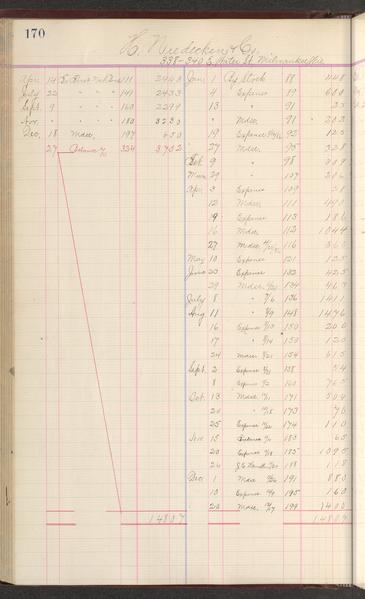 170
H. Niedecken & Co.
338-340 E. Water St. Milwaukee Wis
Apr. 14 To 111
July 22 " 141 2433
Sept. 9 " 160 2299
Nov. " " 180 3230
Dec. 18 Mdse, 197 650
27 Balance 334 3702
14807
Jan. 1 By Stock 88
4 Expense 89 680
13 " 91 35
" Mdse 91 213
19 Expense 92 125
27 Mdse. 95 328
Feb. 9 " 98 309
Mar. 29 " 107 206
Apr. 3 Expense 109 38
12 Mdse 111 491
19 Expense 113 186
16 Mdse 113 1044
27 Mdse 116 360
May 10 Expense 121 125
June 23 Expense 132 425
29 Mdse 134 467
July 8 " 7/6 136 1411
Aug. 11 " 8/9 148 1476
16 Expense 150 200
17 " 8/14 150 120
24 Mdse 8/21 154 615
Sept. 2 Expense 158 54
8 Expense 160 765
Oct. 13 Mdse 171 304
20 " 173 76
25 Expense 174 110
Nov. 15 183 65
20 Expense 185 1095
26 188 118
Dec. 1 Mdse 191 880
10 Expense 195 160
20 Mdse 199 1400
14807